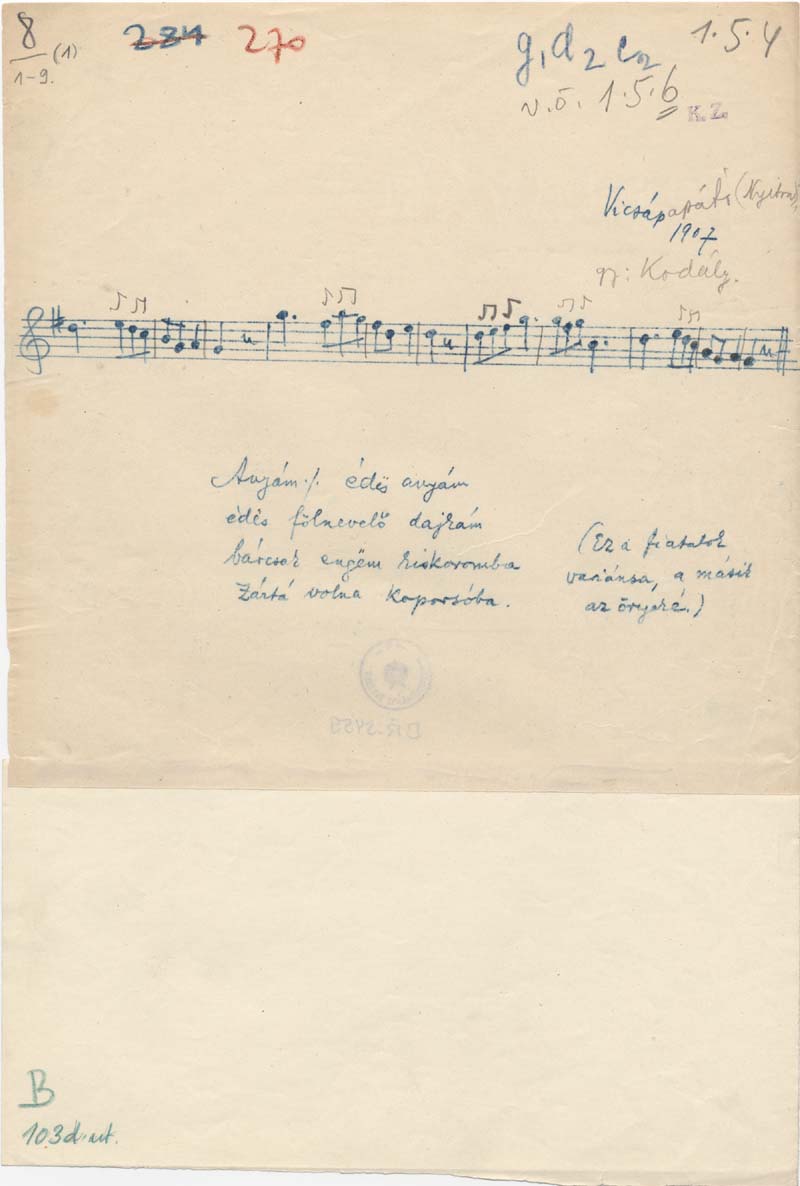 8
1-9. (1)
234 270
g1 d2 e2 1.5.4
v.ö. 1.5.6
K. Z.
Vicsápapáti (Nyitra),
1907
gy: Kodály.
Anyám ·/. édës anyám
édës fölnevelő dajkám
bárcsak engëm kiskoromba
Zártá volna koporsóba.
(Ez a fiatalok
variánsa, a másik
az öregeké.)
B
103d.